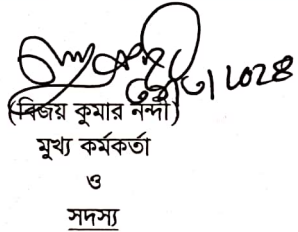 (বিজয় কুমার নন্দী)
মুখ্য কর্মকর্তা
ও
সদস্য